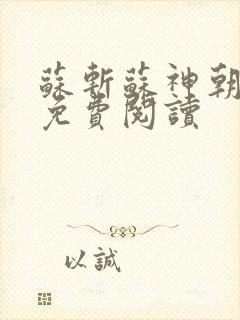 蘇斬蘇神朝
免費閱讀
以誠